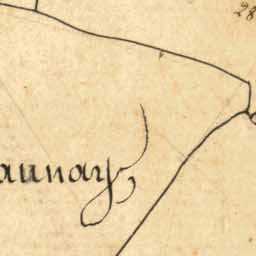 28
aunay